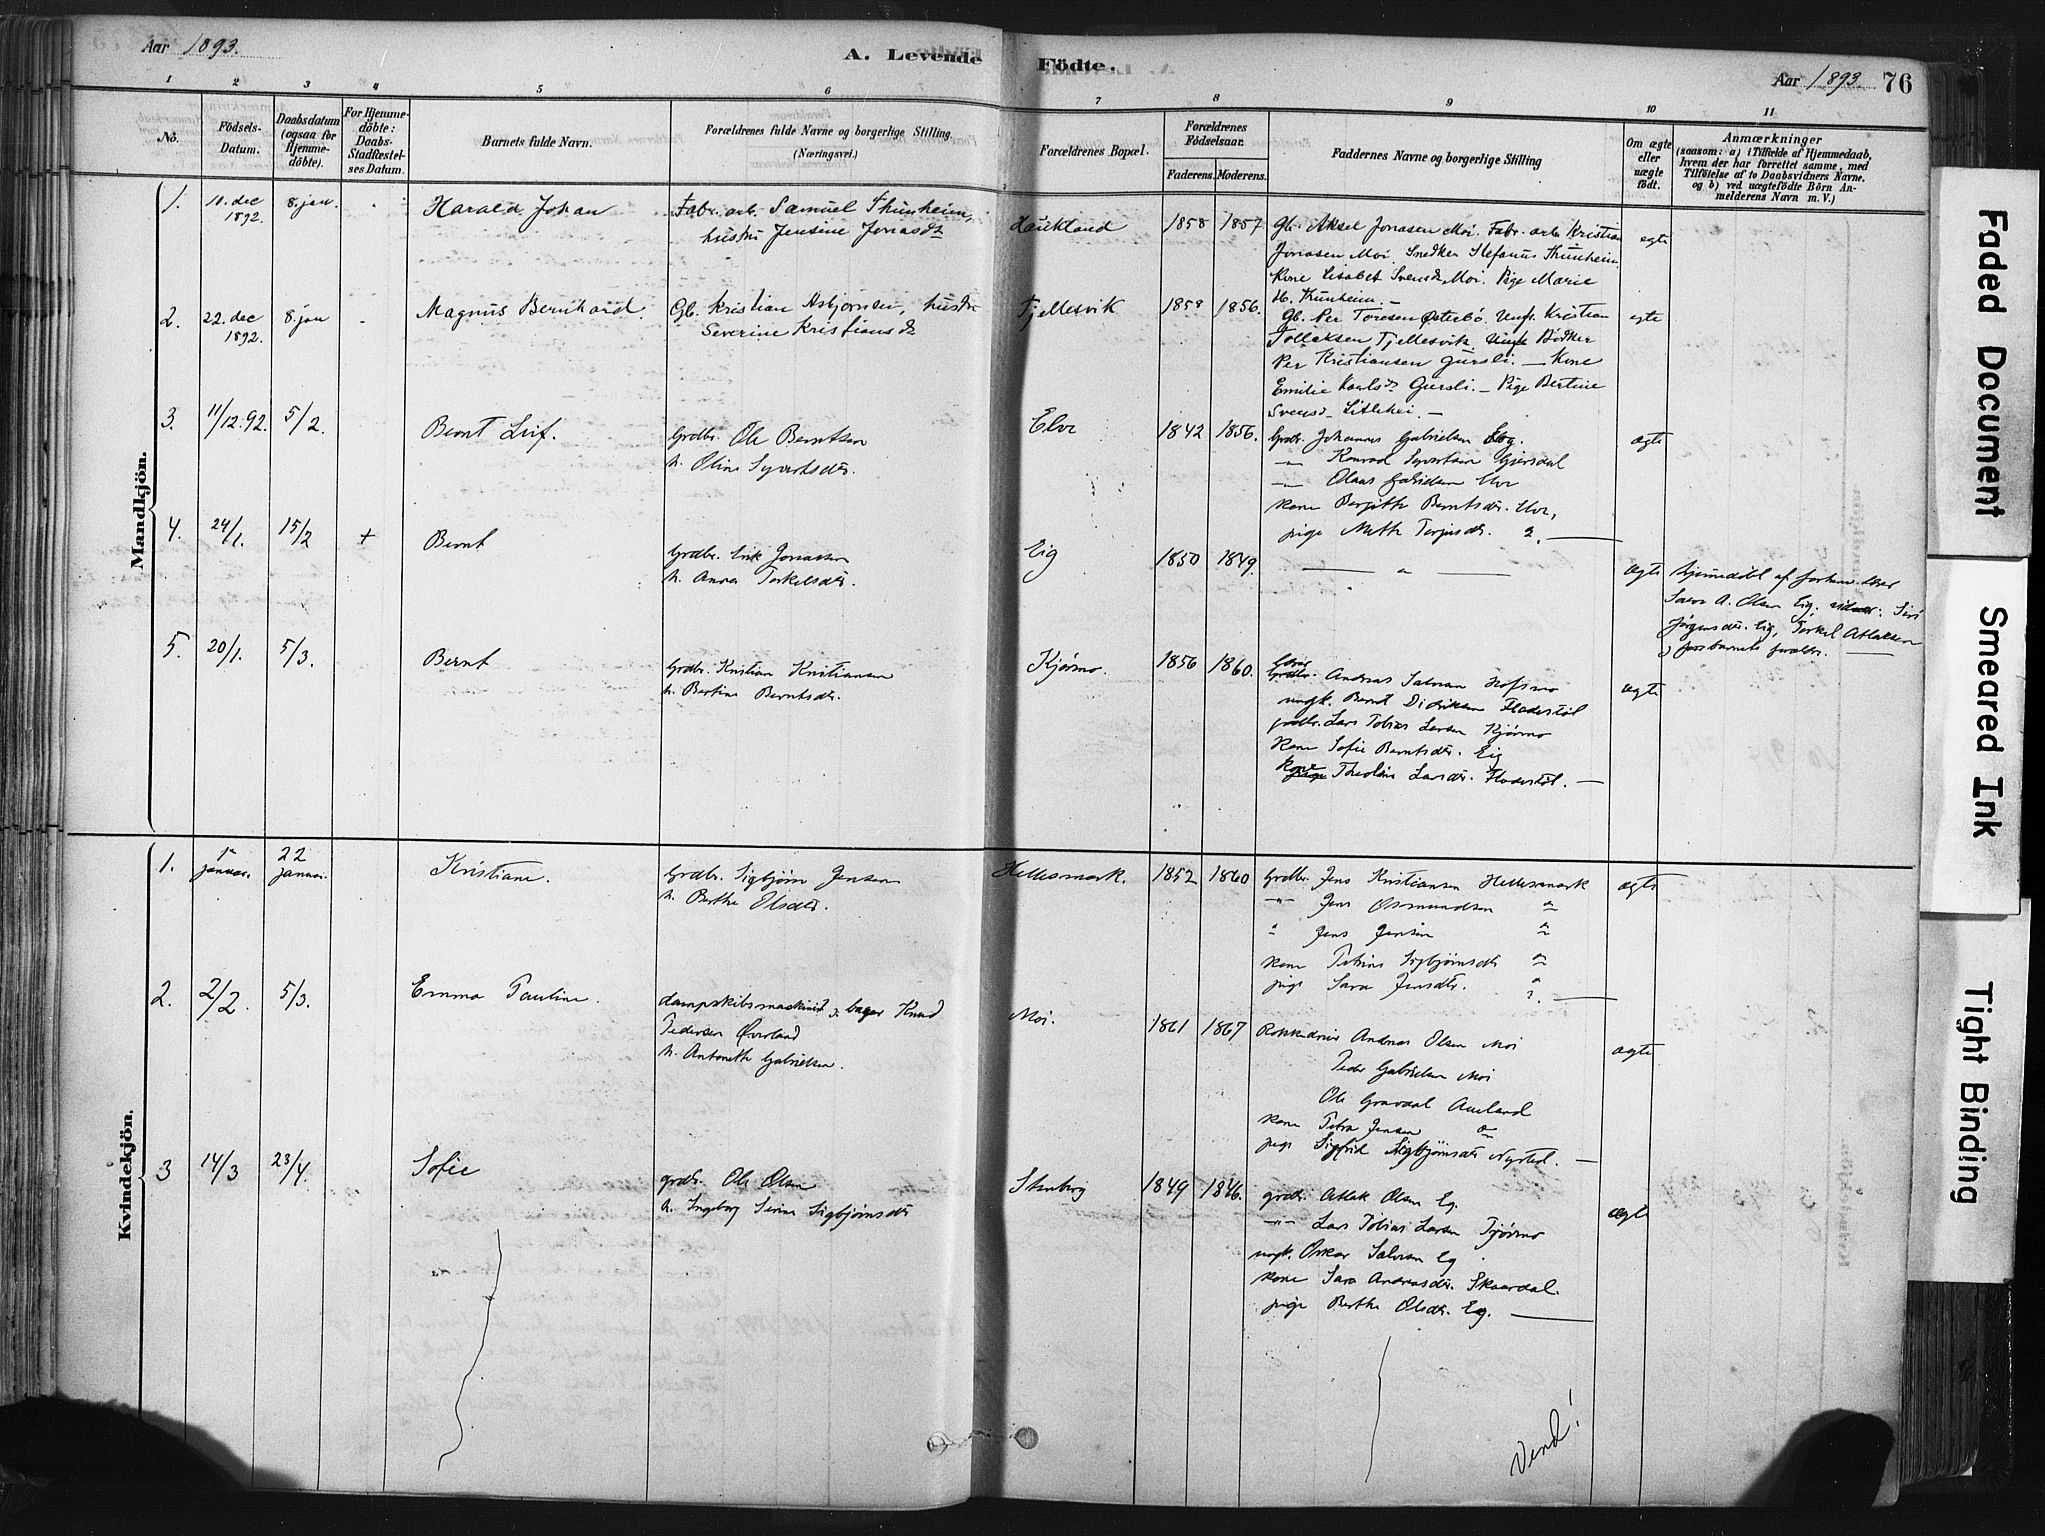 Aar 1893.
A. Levende Födte.
Aar 1893. 76
1 2 3 4 5 6 7 8 9 10 11
No.
Födsels-Datum.
Daabsdatum (ogsaa for Hjemmedöbte).
For Hjemmedöbte: Daabs-Stadfæstelses Datum.
Barnets fulde Navn.
Forældrenes fulde Navne og borgerlige Stilling.
(Næringsvei.)
Forældrenes Bopæl.
Forældrenes Födselsaar.
Faderens. Moderens.
Faddernes Navne og borgerlige Stilling
Om ægte eller uægte födt.
Anmærkninger
(saasom: a) i Tilfælde af Hjemmedaab,
hvem der har forrettet samme, med
Tilföielse af to Daabsvidners Navne.
og b) ved uægtefödte Börn Anmelderens Navn m. V.)
Mandkjön.
1. 10. dec 1892. 8. jan. Harald Johan
Fabr. arb. Samuel Thunheim,
hustru Jensine Jonasdt
Haukland 1858 1857
Gb. Aksel Jonasen Moi. Fabr. arb. Kristian
Jonasen Moi. Snedker Stefanus Thunheim.
Kone Lisabet Svensdt. Moi. Pige Marie
Thunheim. —
egte
2. 22. dec 1892. 8. jan Magnus Bernhard.
Gb. Kristian Asbjørnsen, hustru
Severine Kristiansdt
Tjellesvik 1858 1856.
Gb. Per Toresen Østerbö. Ungk. Kristian
Tollaksen Tjellesvik. Bödker
Per Kristiansen Gursli. — Kone
Emilie Karlsdt. Gursli. — Pige Bertine
Svensd. Litlehei. —
egte
3. 11/12.92. 5/2. Bernt Leif.
Grdbr. Ole Berntsen
h. Oline Syvertsdtr.
Elve 1842 1856.
Grdbr. Johannes Gabrielsen
— Konrad Syvertsen Gjersdal
— Olaus Gabrielsen
kone Bergithe Berntsdtr.
pige Mette Terjesdtr.
ægte
4. 24/1. 15/2 + Bernt
Grdbr. Erik Jonassen
h. Anna Torkelsdtr.
Eig 1850 1849.
— " —
ægte
hjemmedöbt af
A. Olsen Eig.
Jörgensdtr. Eig, Torkel Atlaksen
5. 20/1. 5/3. Bernt
Grdbr. Kristian Kristiansen
h. Bertine Berntsdtr.
Kjørmo. 1856 1860.
Grdbr. Andreas Salvesen Hofsmo
ungk. Bernt Didriksen Fladestöl
grdbr. Lars Tobias Larsen Kjørmo
Kone Sofie Berntsdtr. Eig
kone Theoline Larsdtr. Fladestöl. —
ægte
Kvindekjön.
1. januar. 22 januar. Kristiane.
Grdbr. Sigbjörn Jensen
h. Berthe Olsdtr.
Hellesmark. 1852 1860
Grdbr. Jens Kristiansen Hellesmark
—"— Jens Osmundsen "
" Jens Jensen "
kone Petrine Sigbjörnsdtr "
pige Sara Jensdtr. "
ægte
2. 2/2. 5/3. Emma Pauline.
dampskibsmaskinist & bager Knud
Pedersen Øverland
h. Antonette Gabrielsen.
Moi. 1861 1867
Andreas Olsen Moi
Peder Gabrielsen Moi
Ole Gravdal Aurland
kone Petra Jensen "
pige Sigfrid Sigbjörnsdtr Nysted. —
ægte
3 14/3 23/4. Sofie
grdbr. Ole Olsen
h. Ingeborg Serine Sigbjörnsdtr
Stenberg 1849 1846.
grdbr. Atlak Olsen Eg.
—"— Lars Tobias Larsen Kjørmo
ungk. Oskar Salvesen Eg
kone Sara Andreasdtr. Skaardal.
pige Berthe Olsdtr. Eg.
ægte
Vend!
Faded Document
Smeared Ink
Tight Binding